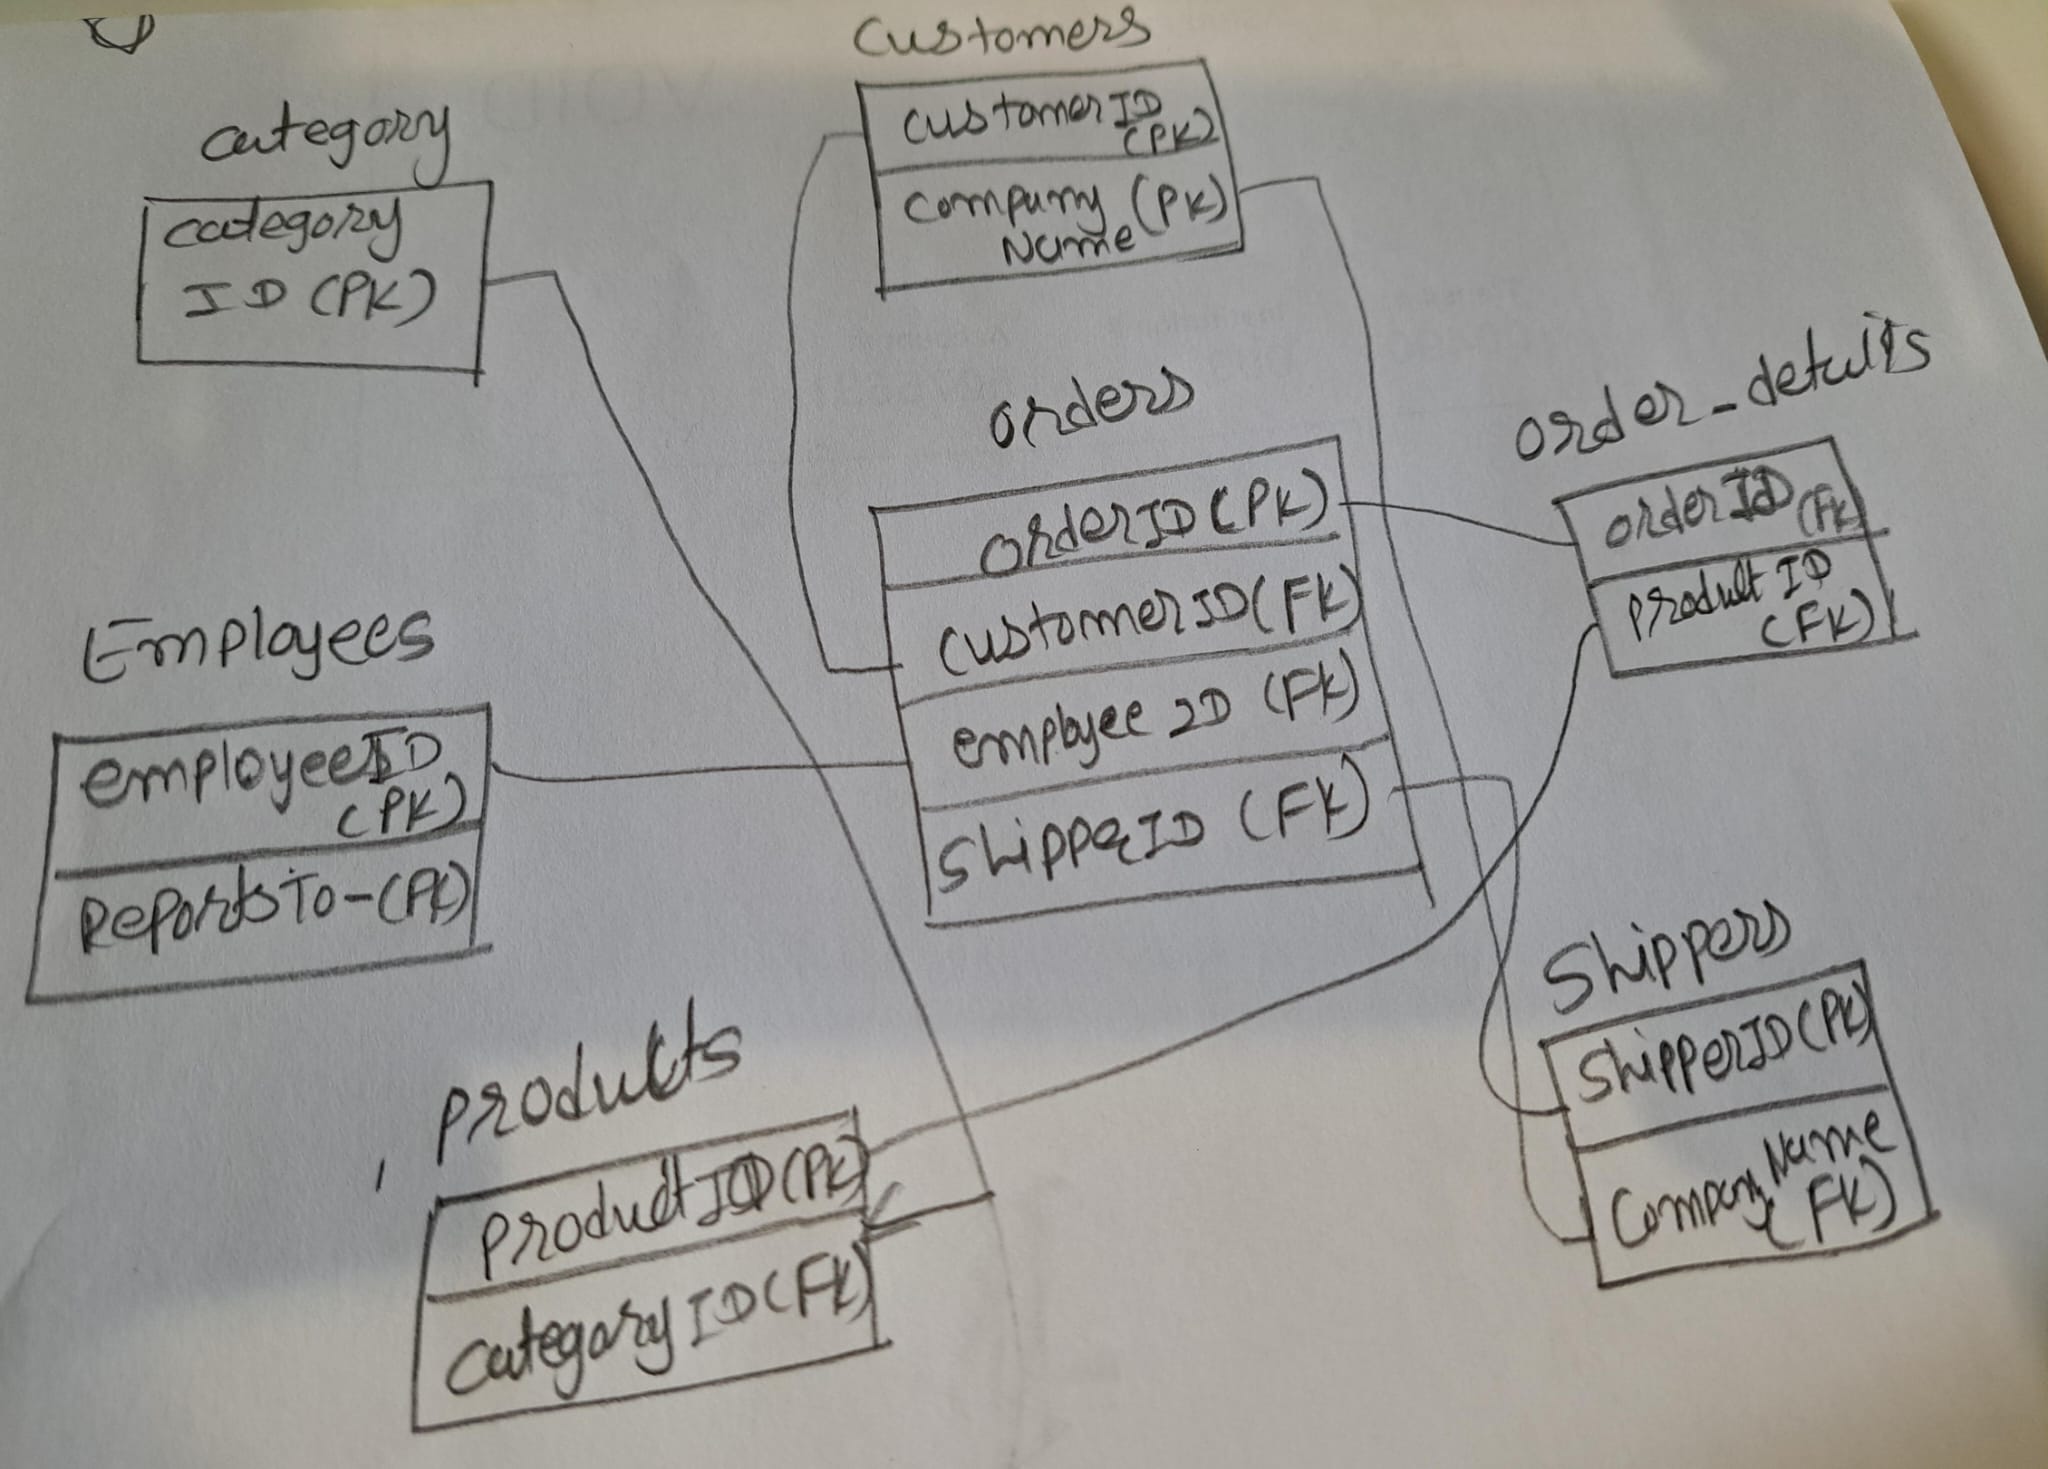 Customers
customerID
(PK)
Company (PK)
Name
category
category
ID (PK)
orders
orderID (PK)
customerID (FK)
employee ID (FK)
ShipperID (FK)
order_details
orderID (FK)
product ID
(FK)
Employees
employeeID
(PK)
ReportsTo-(PK)
Shippers
ShipperID (PK)
Company Name
(FK)
products
productID (PK)
category ID (FK)